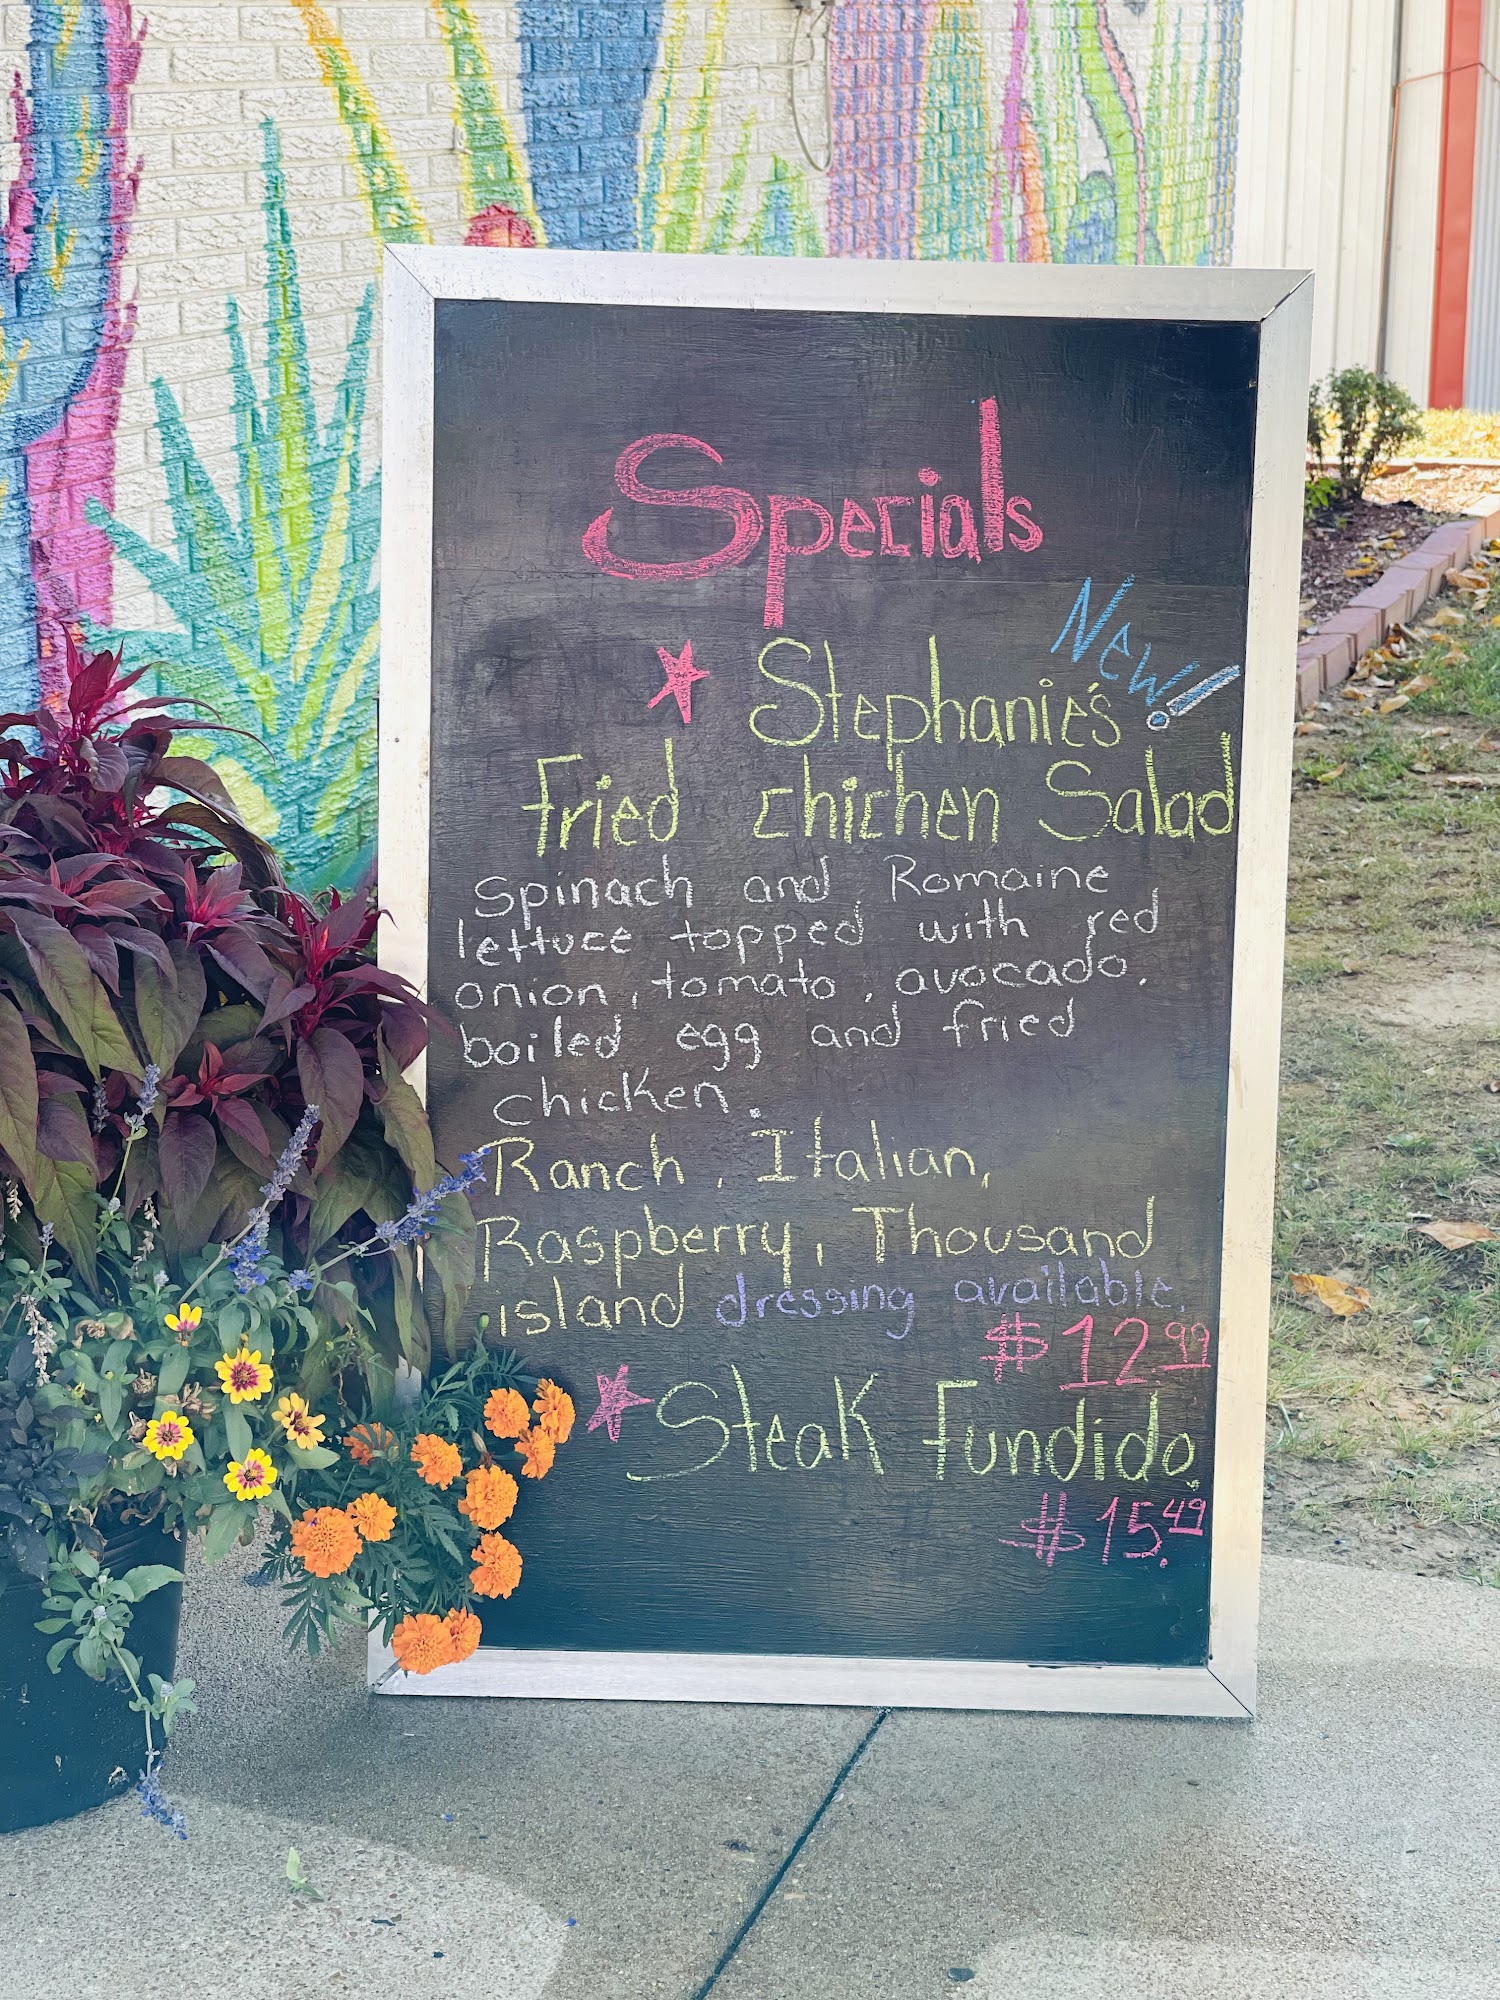 Specials
New!
Stephanie's
Fried Chicken Salad
Spinach and Romaine
lettuce topped with red
onion, tomato, avocado.
boiled egg and fried
chicken.
Ranch, Italian,
Raspberry, Thousand
island dressing available.
$12.99
Steak Fundido
$15.49